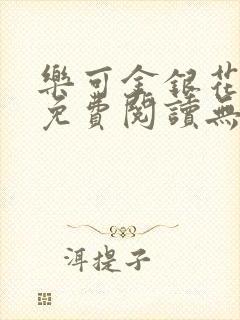 樂可金銀花
免費閱讀無
洱提子